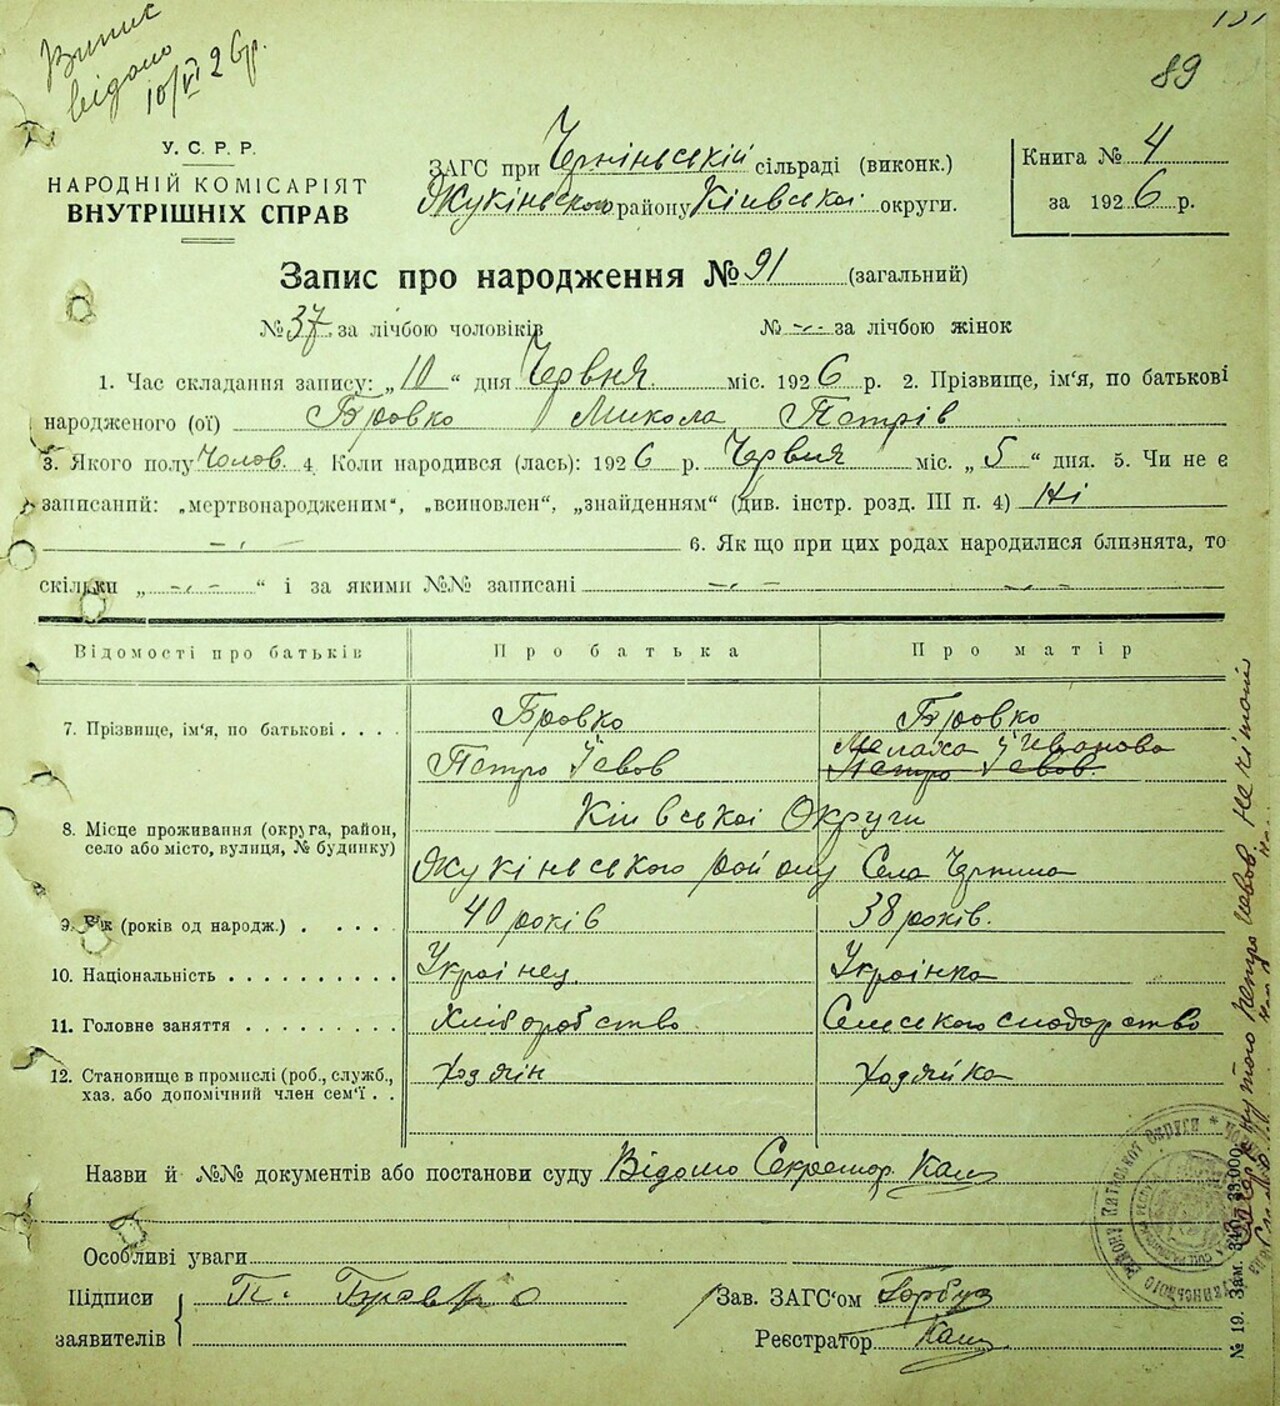 Випис
відомо
10/VI 26р.
131
89
У. С. Р. Р.
НАРОДНІЙ КОМІСАРІЯТ
ВНУТРІШНІХ СПРАВ
ЗАГС при Чернінській сільраді (виконк.)
Жукінського району Київської округи.
Книга № 4
за 1926 р.
Запис про народження № 91 (загальний)
№ 37 за лічбою чоловіків № -„- за лічбою жінок
1. Час складання запису: „10“ дня Червня міс. 1926 р. 2. Прізвище, ім‘я, по батькові
народженого (ої) Бровко Микола Петрів
3. Якого полу Чолов. 4. Коли народився (лась): 1926 р. Червня міс. „5“ дня. 5. Чи не є
записаний: „мертвонародженим“, „всиновлен“, „знайденням“ (див. інстр. розд. III п. 4) Ні
6. Як що при цих родах народилися близнята, то
скільки „-„-“ і за якими №№ записані -„- -„-
Відомості про батьків Про батька Про матір
7. Прізвище, ім‘я, по батькові . . . . Бровко Бровко
Петро Іевов Мелаха Іванова
Петро Іевов.
8. Місце проживання (округа, район,
село або місто, вулиця, № будинку)
Київської Округи
Жукінського району Села Чернина
9. Вік (років од народж.) . . . . . 40 років 38 років.
10. Національність . . . . . . . . . . Українец. Українка
11. Головне заняття . . . . . . . . . Хліборобство Сельскогосподарство
12. Становище в промислі (роб., служб.,
хаз. або допомічний член сем‘ї . .
Ходяїн Ходяйка
Назви й №№ документів або постанови суду Відомо Секретар
Особливі уваги
Підписи
заявителів
П. Бровко
Зав. ЗАГС‘ом Горбуз
Реєстратор
Петро Іевов не
№ 19. Зам. 340—33.000